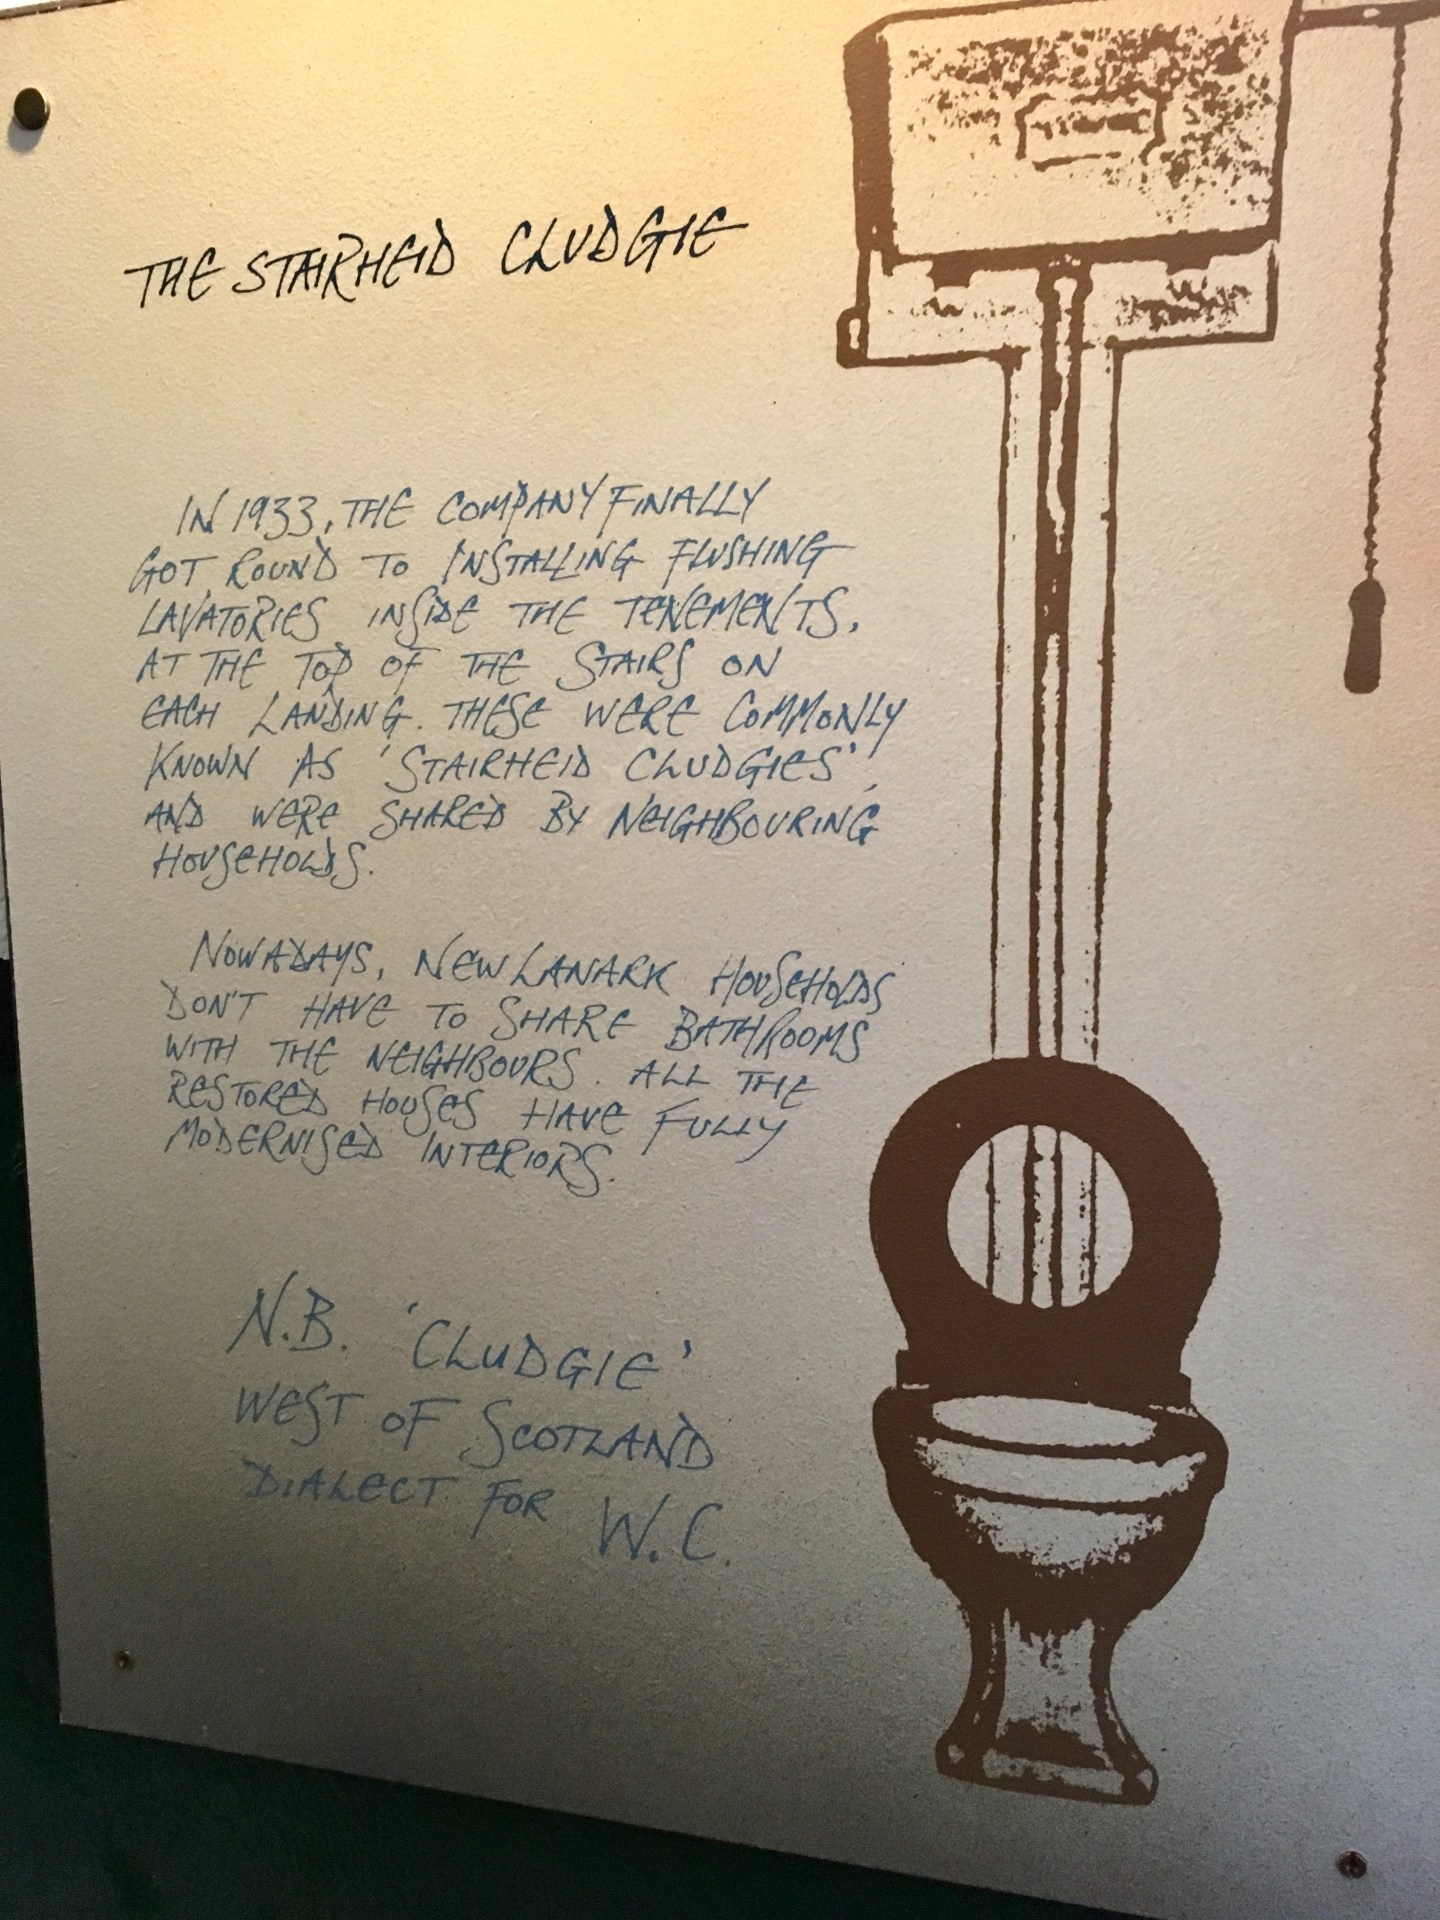 THE STAIRHEID CLUDGIE
IN 1933, THE COMPANY FINALLY
GOT ROUND TO INSTALLING FLUSHING
LAVATORIES INSIDE THE TENEMENTS,
AT THE TOP OF THE STAIRS ON
EACH LANDING. THESE WERE COMMONLY
KNOWN AS 'STAIRHEID CLUDGIES',
AND WERE SHARED BY NEIGHBOURING
HOUSEHOLDS.
NOWADAYS, NEW LANARK HOUSEHOLDS
DON'T HAVE TO SHARE BATHROOMS
WITH THE NEIGHBOURS. ALL THE
RESTORED HOUSES HAVE FULLY
MODERNISED INTERIORS.
N.B. 'CLUDGIE'
WEST OF SCOTLAND
DIALECT FOR W.C.